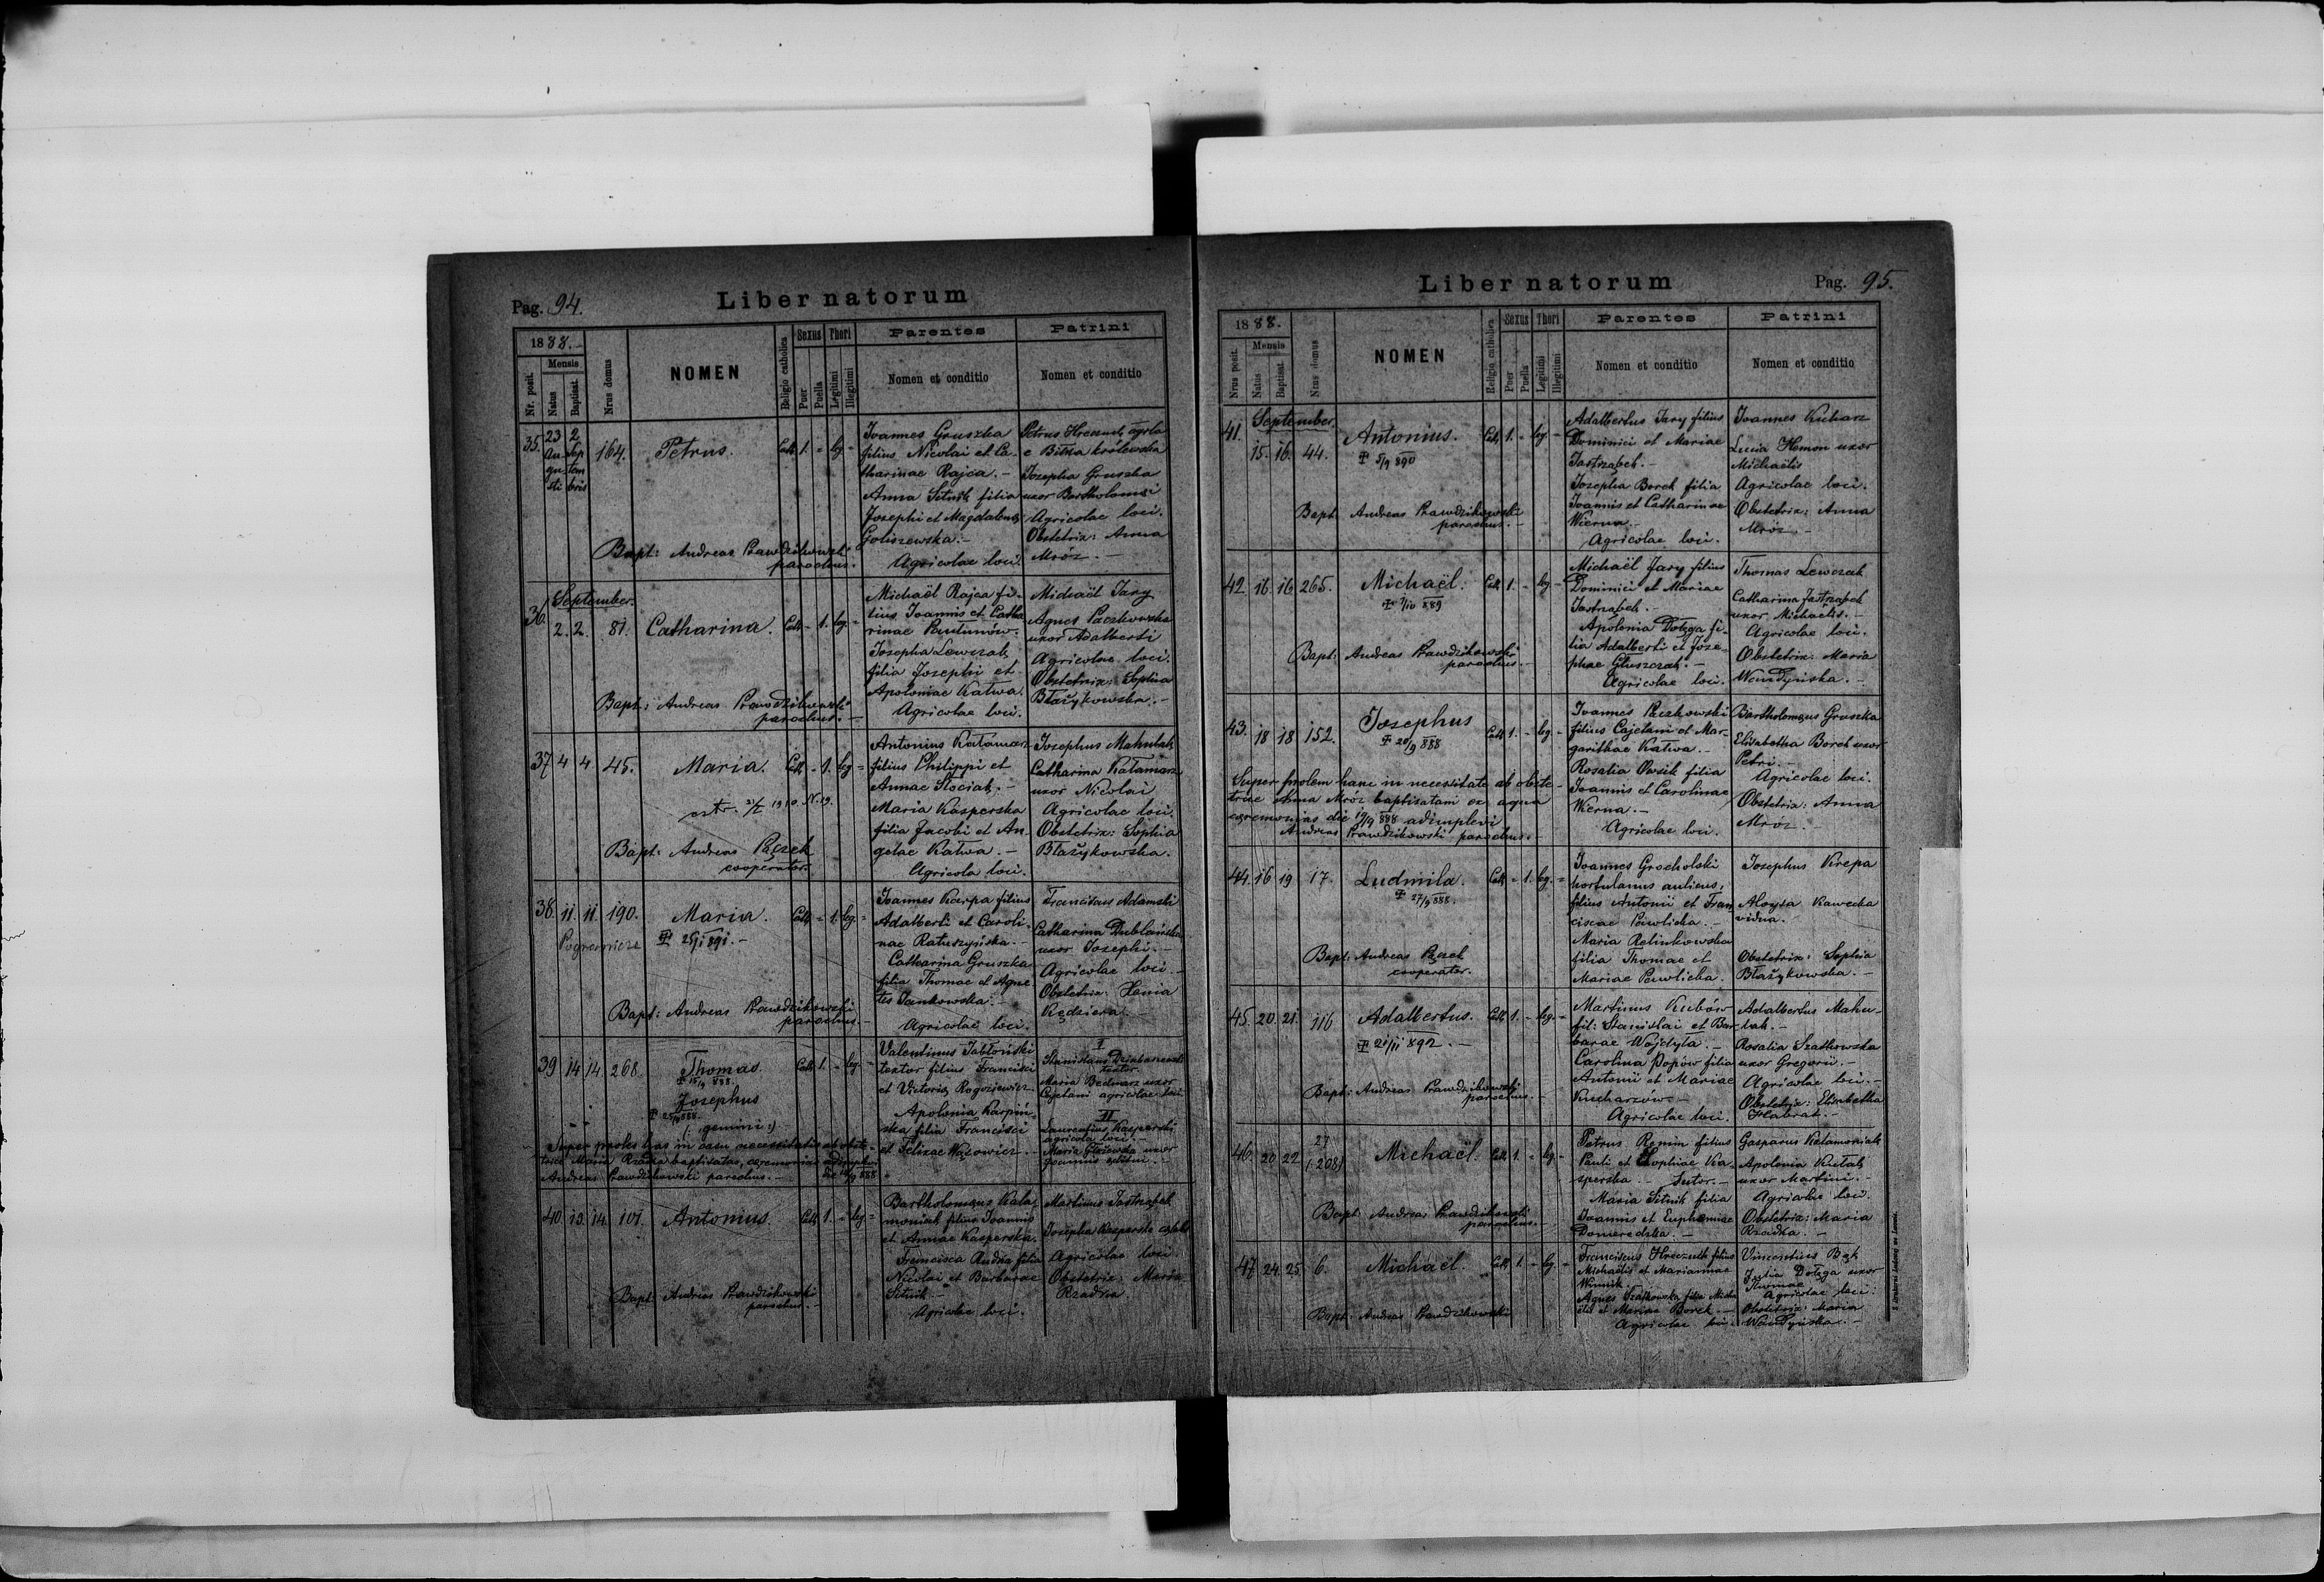 Pag. 94.
Liber natorum
1888.
Mensis
Nr. posit.
Natus
Baptisat.
Nrus domus
NOMEN
Religio catholica
Sexus
Puer
Puella
Thori
Legitimi
Illegitimi
Parentes
Nomen et conditio
Patrini
Nomen et conditio
35.
23 Au-
gu-
sti
2 Sep
tem
bris
164.
Petrus.
Cath 1. - leg -
Bapt: Andreas Prawdzikowski
parochus.
Joannes Gruszka
filius Nicolai et Ca-
tharinae Rajca. -
Anna Sitnik filia
Josephi et Magdalenae
Goliszewska. -
Agricolae loci.
Petrus agrla
e Bitka królewska
Josepha Gruszka
uxor Bartholomei
Agricolae loci.
Obstetrix: Anna
Mróz. -
September.
36.
2. 2. 81. Catharina. Cath - 1. leg. -
Bapt: Andreas Prawdzikowski
parochus. -
Michaël Rajca fi-
lius Joannis et Catha
rinae
Josepha Lewczak
filia Josephi et
Apoloniae Katwa.
Agricolae loci.
Michaël Jary
Agnes Paczkowska
uxor Adalberti
Agricolae loci.
Obstetrix: Sophia
Błażykowska. -
37 4 4 45. Maria. Cath - 1. leg -
1910. N. 19.
Bapt: Andreas Pączek
cooperator.
Antonius Kałamarz
filius Philippi et
Annae Kociak. -
Maria Kasperska
filia Jacobi et An-
gelae Katwa. -
Agricola loci.
Josephus Mahulak
Catharina Kałamarz
uxor Nicolai
Agricolae loci.
Obstetrix: Sophia
Błażykowska.
38. 11. 11. 190. Maria. Cath - 1. leg. -
Pogranicze
25/1 891. -
Bapt: Andreas Prawdzikowski
parochus. -
Joannes Karpa filius
Adalberti et Caroli-
nae Ratuszyńska. -
Catharina Gruszka
filia Thomae et Agne
tes Jankowska. -
Agricolae loci.
Franciscus Adamski
Catharina Dublańska
uxor Josephi. -
Agricolae loci -
Obstetrix: Xenia
Kędziera. -
39 14 14. 268. Thomas Cath 1. - leg. -
15/9 888.
Josephus
25/9 888.
(: gemini :)
Super proles has in casu necessitatis ab obste-
trice Maria Rzadka baptisatas, ceremonias adimplevi
Andreas Prawdzikowski parochus. - die 14/9 888
Valentinus Jabłoński
textor filius Francisci
et Victoria Rogoziewicz
Apolonia Karpiń-
ska filia Francisci
et Felixae Wąsowicz. -
I
Stanislaus
textor.
Maria Bednarz uxor
Cajetani agricolae loci
II
Laurentius Kasperski
agricola loci. -
Maria uxor
Joannis
40. 13. 14. 101. Antonius. Cath 1. - leg -
Bapt: Andreas Prawdzikowski
parochus. -
Bartholomaeus Kala-
moniak filius Joannis
et Annae Kasperska.
Francisca Rudka filia
Nicolai et Barbarae
Sitnik -
Agricolae loci.
Martinus Jastrząbek
Josepha Kasperska
Agricolae loci
Obstetrix: Maria
Rzadka. -
Liber natorum
Pag. 95.
1888.
Mensis
Nrus posit.
Natus
Baptisat.
Nrus domus
NOMEN
Religio catholica
Sexus
Puer
Puella
Thori
Legitimi
Illegitimi
Parentes
Nomen et conditio
Patrini
Nomen et conditio
September.
41. 15. 16. 44. Antonius. Cath 1. - leg. -
5/9 890
Bapt. Andreas Prawdzikowski
parochus. -
Adalbertus Jary filius
Dominici et Mariae
Jastrząbek. -
Josepha Borek filia
Joannis et Catharinae
Wierna. -
Agricolae loci.
Joannes Kucharz
Lucia Homon uxor
Michaëlis
Agricolae loci.
Obstetrix: Anna
Mróz. -
42. 16. 16 265. Michaël. Cath 1. - leg -
889
Bapt: Andreas Prawdzikowski
parochus. -
Michaël Jary filius
Dominici et Mariae
Jastrząbek. -
Apolonia Dołęga fi-
lia Adalberti et Jose-
phae Głuszczak. -
Agricolae loci.
Thomas Lewczak
Catharina Jastrząbek
uxor Michaëlis. -
Agricolae loci.
Obstetrix: Maria
Wandyńska. -
43. 18 18 152. Josephus Cath 1. - leg -
20/9 888
Super prolem hanc in necessitate ab obste-
trice Anna Mróz baptisatam ex aqua
ceremonias die 19/9 888 adimplevi
Andreas Prawdzikowski parochus. -
Joannes Paczkowski
filius Cajetani et Mar-
garithae Katwa. -
Rosalia filia
Joannis et Carolinae
Wierna. -
Agricolae loci.
Bartholomaeus Gruszka
Elisabetha Borek uxor
Petri. -
Agricolae loci.
Obstetrix: Anna
Mróz. -
44. 16 19 17. Ludmila. Cath - 1. leg. -
27/9 888.
Bapt: Andreas Pączek
cooperator.
Joannes Grocholski
hortulanus aulicus,
filius Antonii et Fran
ciscae Pawlicka. -
Maria Relinkowska
filia Thomae et
Mariae Pawlicka.
Josephus Krepa
Aloysa Kawecka
vidua.
Obstetrix: Sophia
Błażykowska. -
45. 20. 21. 116 Adalbertus. Cath 1. - leg. -
21/11 892. -
Bapt: Andreas Prawdzikowski
parochus. -
Martinus Kubów
fil: Stanislai et Bar-
barae Wojdyła. -
Carolina Popów filia
Antonii et Mariae
Kucharzów. -
Agricolae loci.
Adalbertus Mahu-
lak. -
Rosalia Szatkowska
uxor Gregorii. -
Agricolae loci. -
Obstetrix: Elisabetha
Habrat. -
46. 20 22 27
(208) Michaël. Cath 1. - leg -
Bapt: Andreas Prawdzikowski
parochus. -
Petrus Remin filius
Pauli et Sophiae Ka-
sperska. - Sutor. -
Maria Sitnik filia
Joannis et Euphemiae
Domeredzka. -
Gasparus Kalamoniak
Apolonia Kułak
uxor Martini. -
Agricolae loci.
Obstetrix: Maria
Rzadka. -
47 24. 25. 6. Michaël. Cath 1. - leg -
Bapt: Andreas Prawdzikowski
Franciscus filius
Michaëlis et Mariannae
Winnik.
Agnes Szatkowska filia Micha
ëlis et Mariae Borek. -
Agricolae loci.
Vincentius Bąk
Julia Dołęga uxor
Agricolae loci.
Obstetrix: Maria
Wandyńska. -